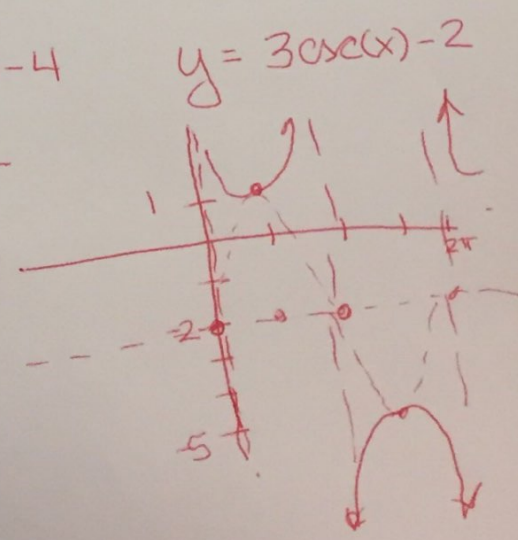 -4
y = 3csc(x)-2
1
2π
-2
-5